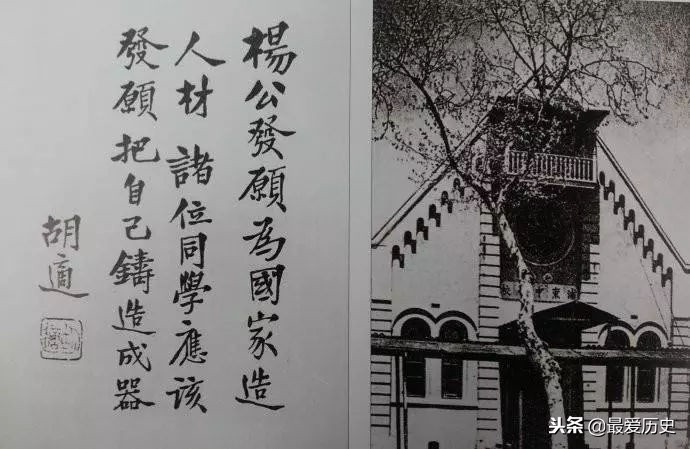 楊公發願為國家造
人材 諸位同學應該
發願把自己鑄造成器
胡適
頭条 @最爱历史